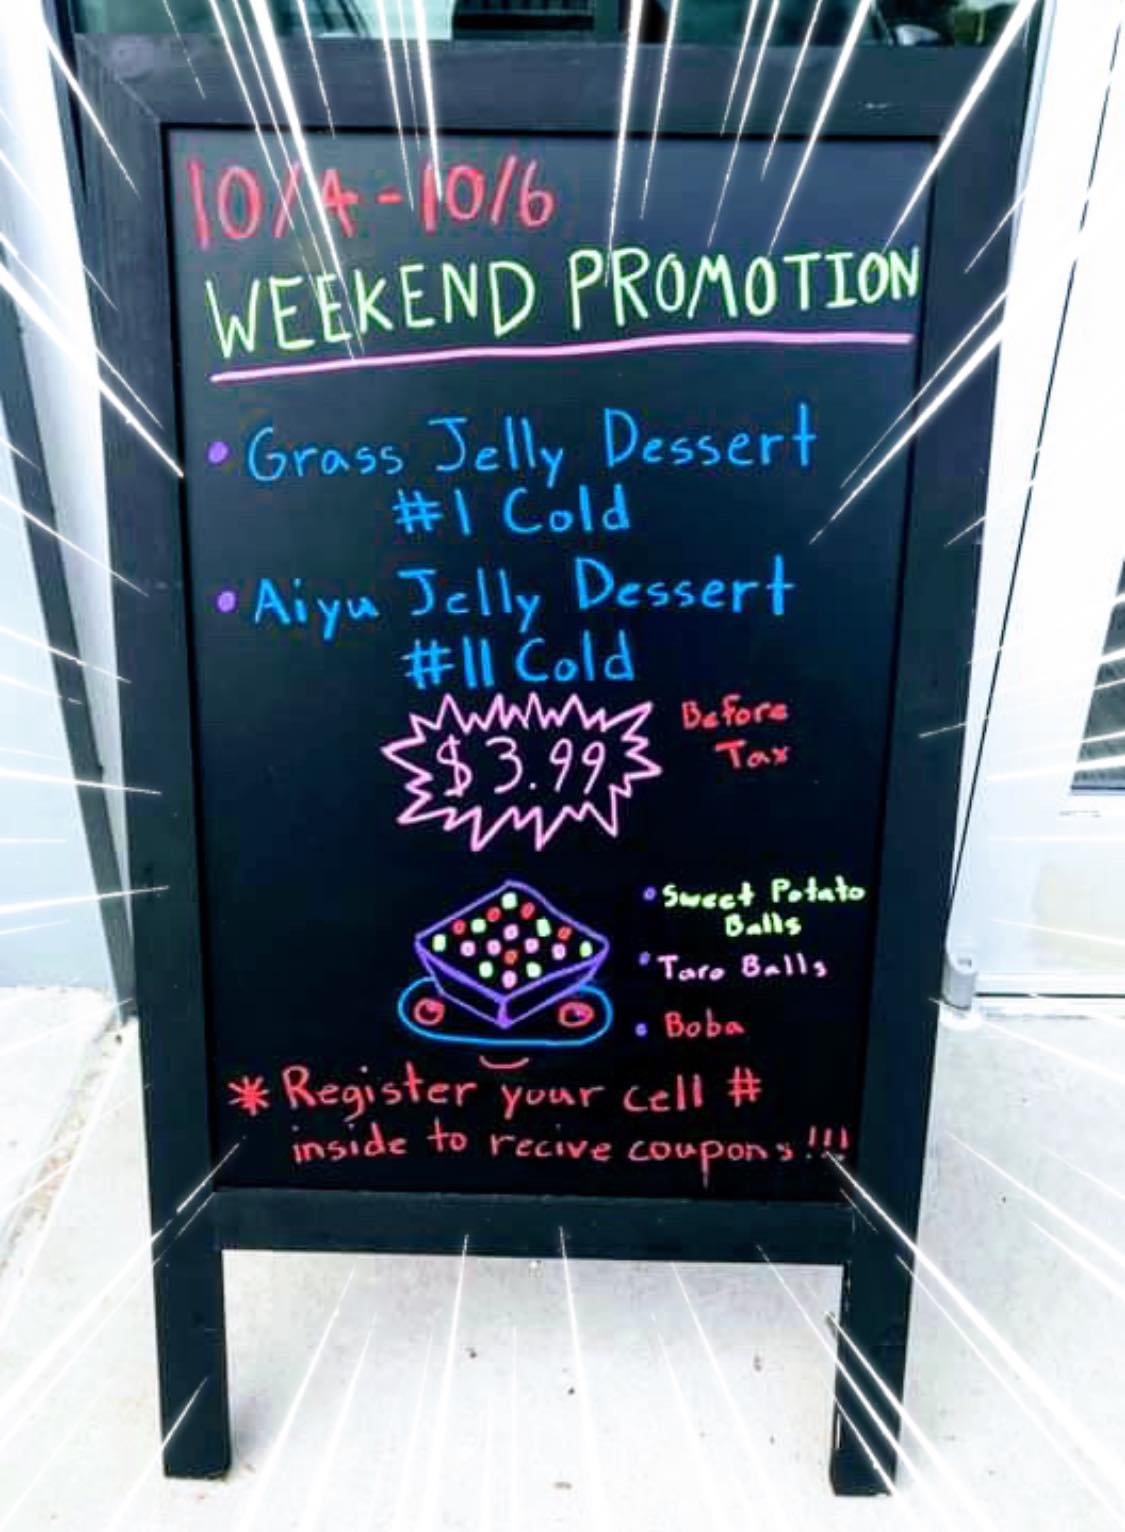 10/4-10/6
WEEKEND PROMOTION
• Grass Jelly Dessert
#1 Cold
• Aiyu Jelly Dessert
#11 Cold
$3.99
Before
Tax
• Sweet Potato
Balls
• Taro Balls
• Boba
* Register your cell #
inside to recive coupons!!!